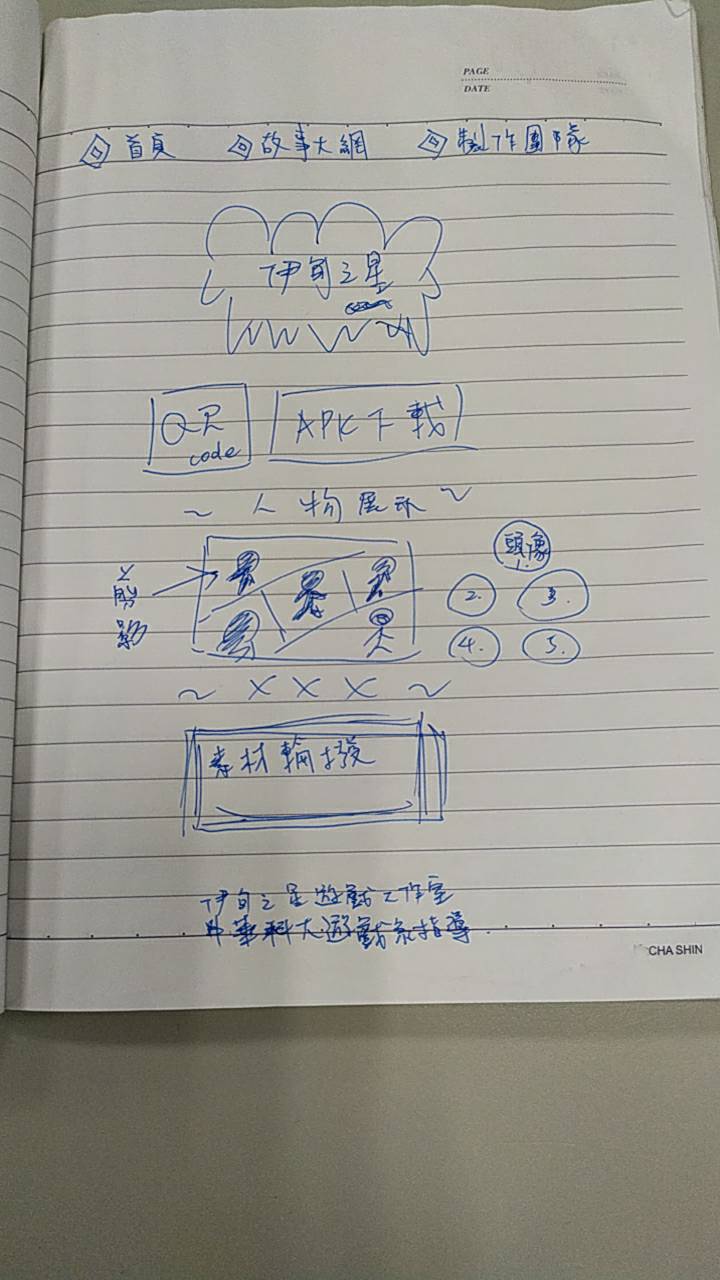 PAGE
DATE
首頁 故事大綱 製作團隊
伊甸之星
QR code APK下載
~ 人物展示 ~
頭像
1.
2. 3.
4. 5.
剪影
~ X X X ~
素材輪撥
伊甸之星遊戲工作室
中華科大遊戲系指導
CHA SHIN